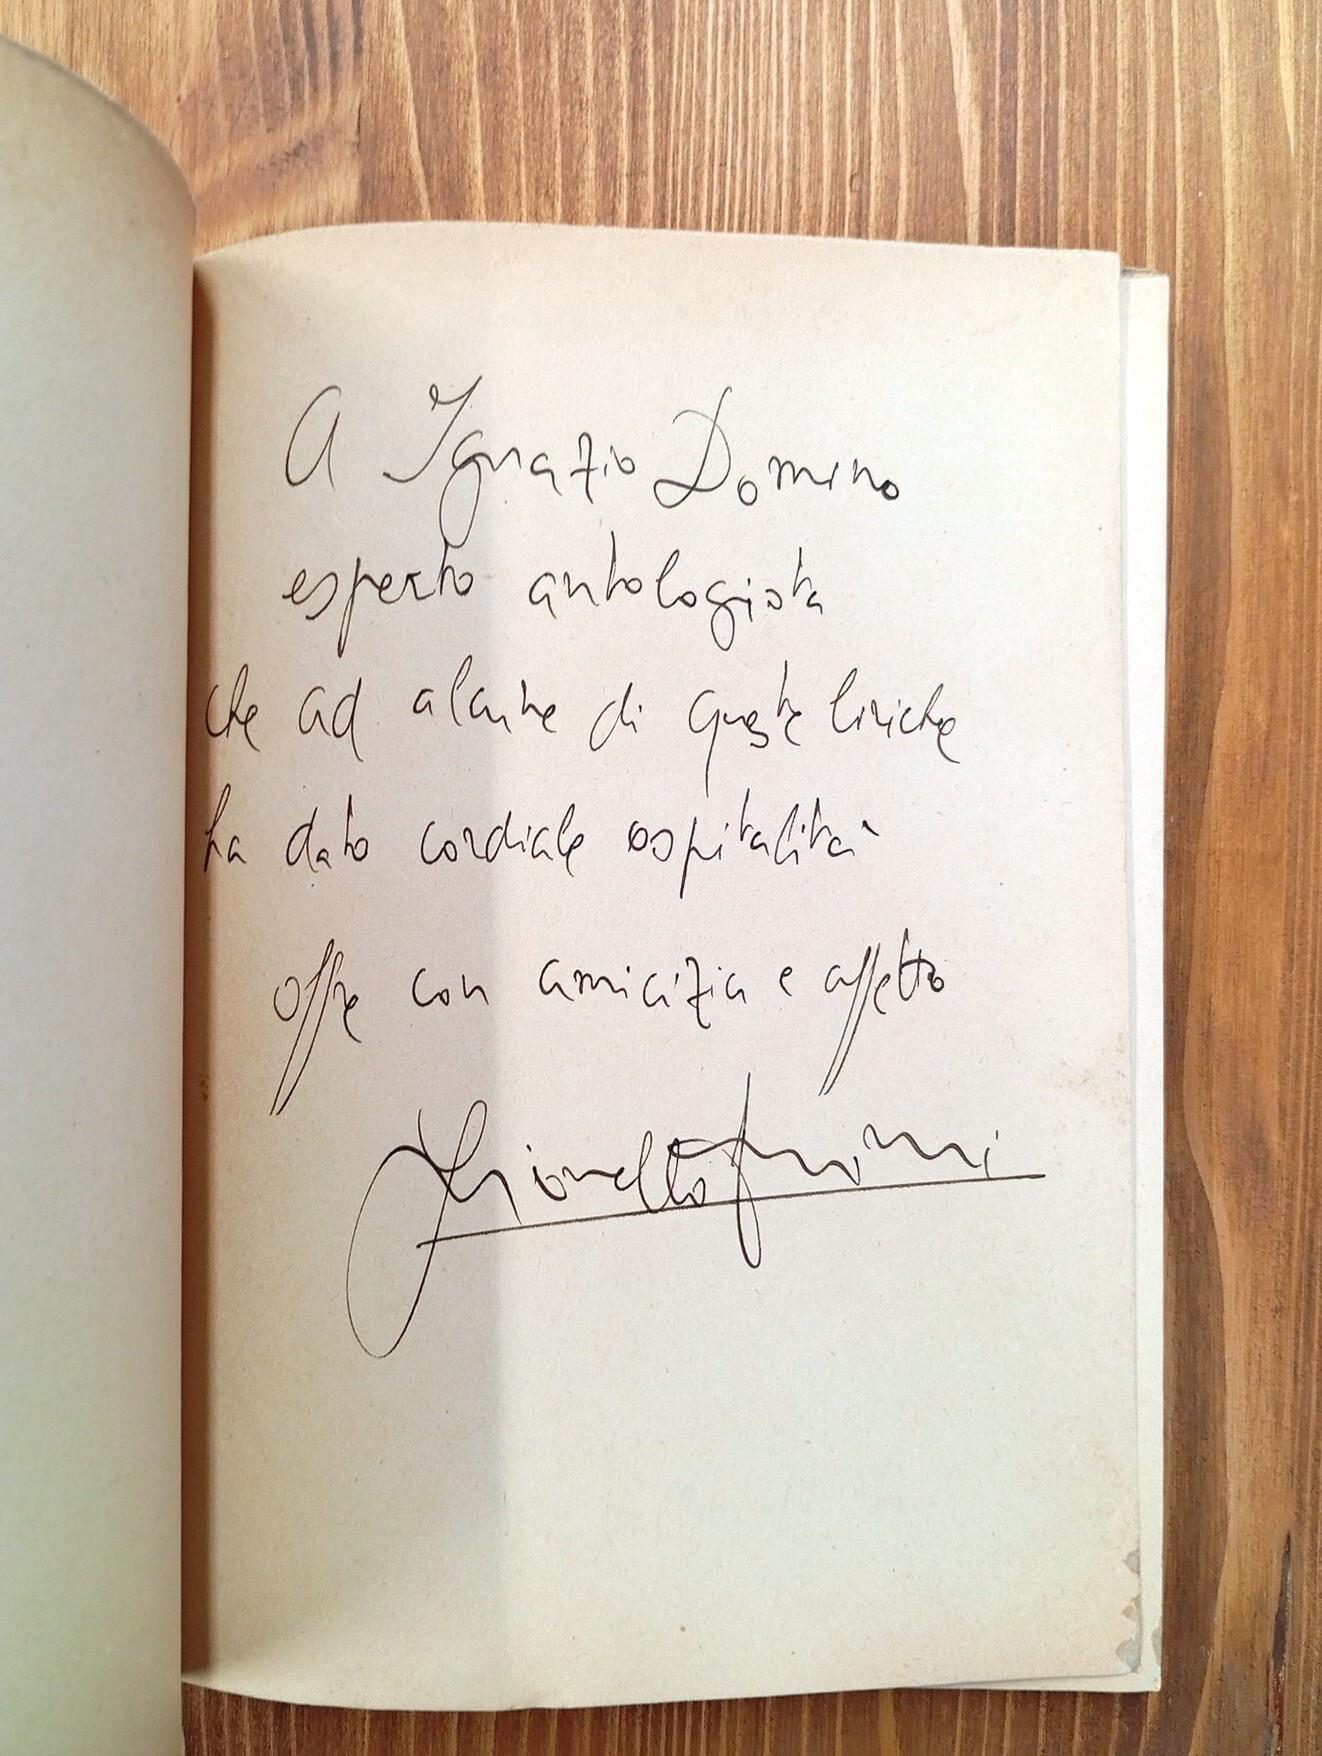 A Ignazio Domino
esperto antologista
che ad alcune di queste liriche
ha dato cordiale ospitalità
offre con amicizia e affetto